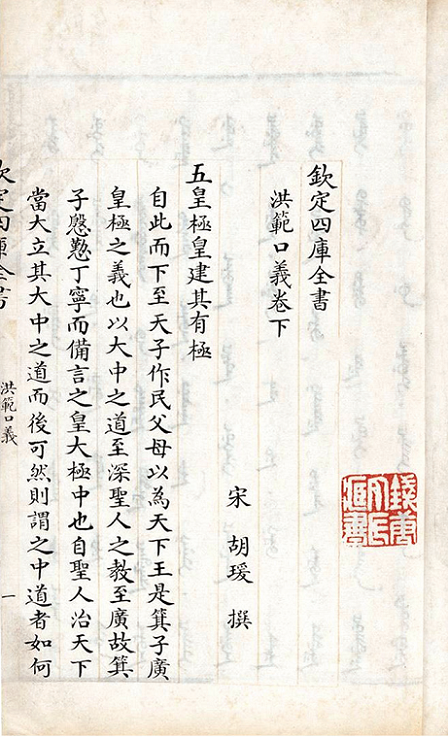 錢唐丁氏藏書
欽定四庫全書
洪範口義卷下
宋 胡瑗 撰
五皇極皇建其有極
自此而下至天子作民父母以為天下王是箕子廣
皇極之義也以大中之道至深聖人之教至廣故箕
子慇懃丁寧而備言之皇大極中也自聖人治天下
當大立其大中之道而後可然則謂之中道者如何
欽定四庫全書
洪範口義
一